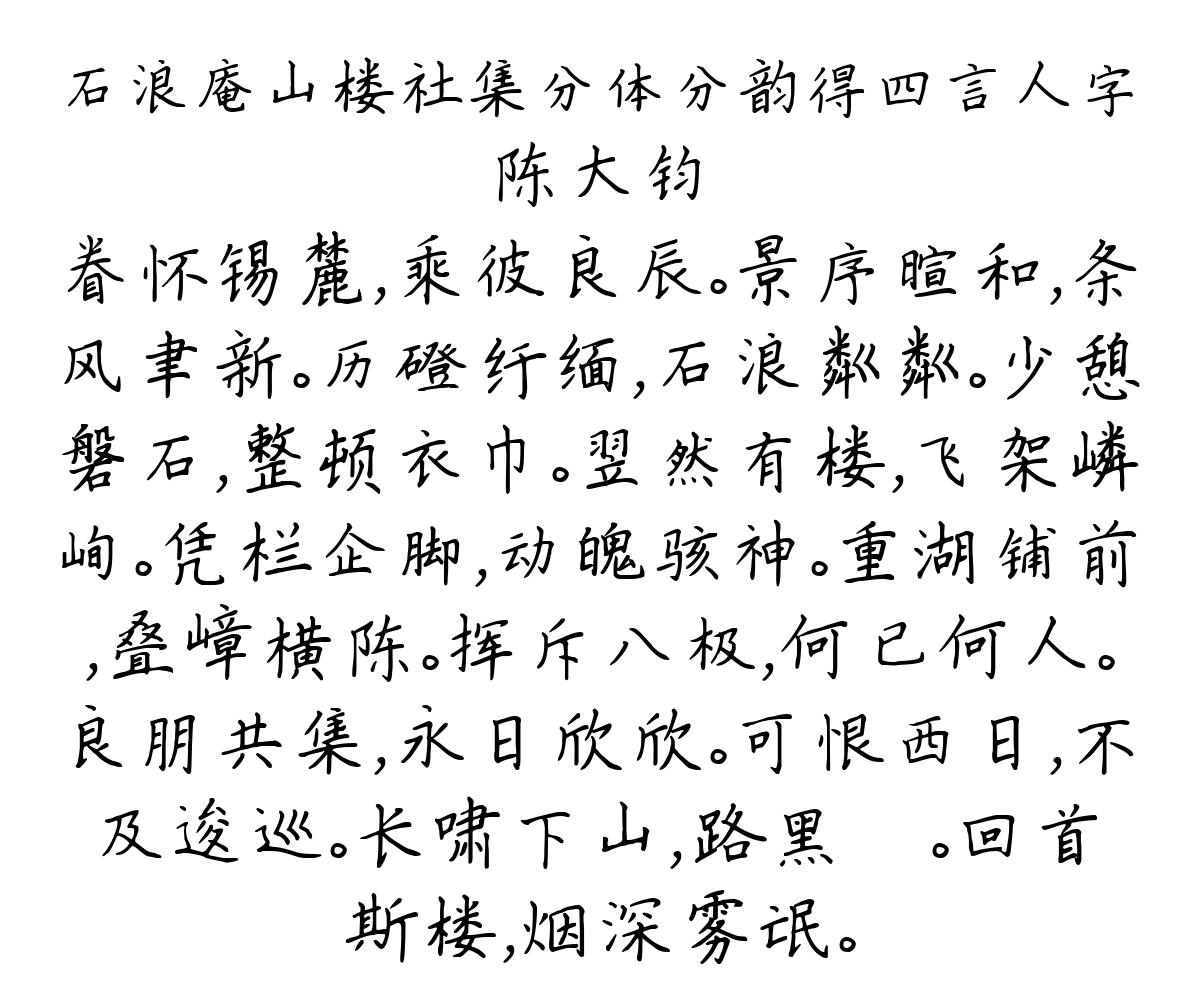 石浪庵山楼社集分体分韵得四言人字
陈大钧
眷怀锡麓,乘彼良辰。景序暄和,条
风聿新。历磴纡缅,石浪粼粼。少憩
磐石,整顿衣巾。翌然有楼,飞架嶙
峋。凭栏企脚,动魄骇神。重湖铺前
,叠嶂横陈。挥斥八极,何已何人。
良朋共集,永日欣欣。可恨西日,不
及逡巡。长啸下山,路黑 。回首
斯楼,烟深雾泯。